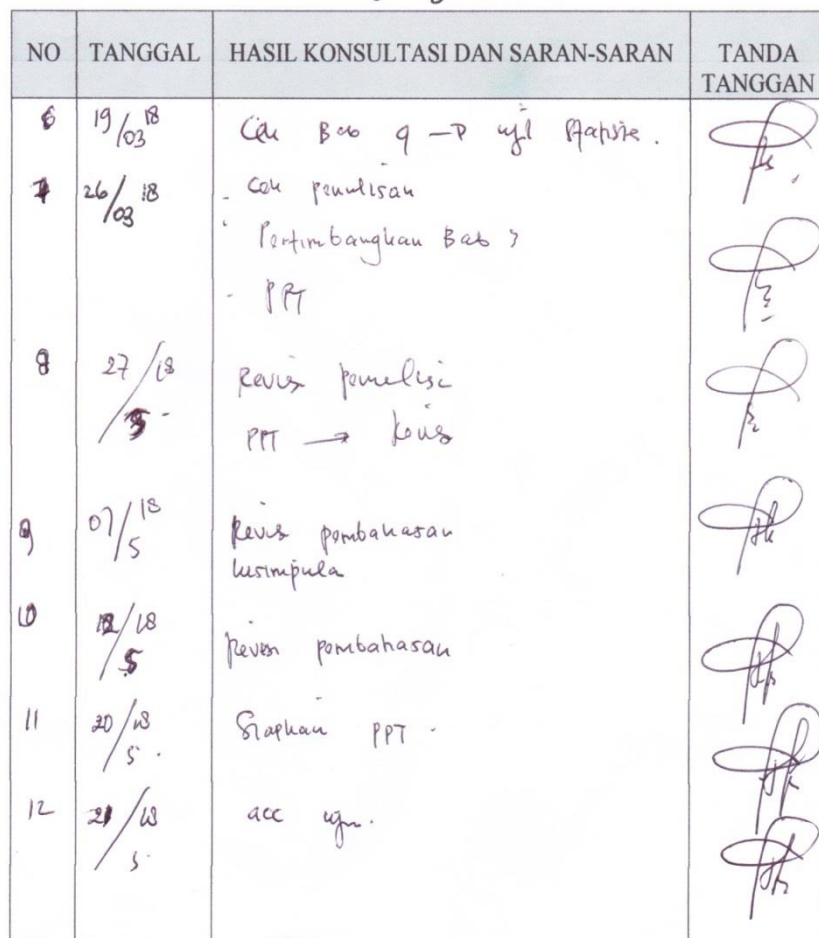 NO TANGGAL HASIL KONSULTASI DAN SARAN-SARAN TANDA TANGGAN
6 19/03 18 Cek Bab 4 → uji Statistik.
7 26/03 18 - Cek penulisan
- Pertimbangkan Bab
- PPT
8 27/18 Revisi penulisan
PPT →
9 07/18 5 Revisi pembahasan
kesimpula
10 12/18 5 Revisi pembahasan
11 20/18 5. Siapkan PPT.
12 21/18 5 acc ujn.